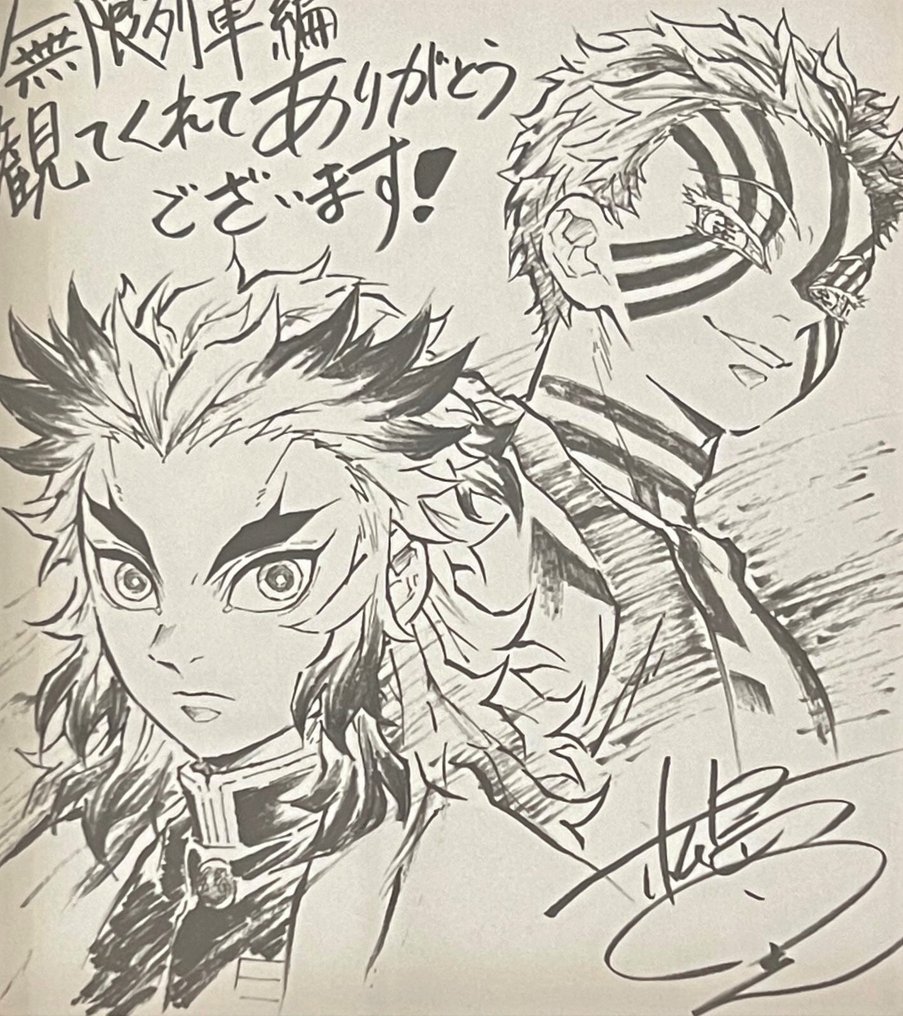 無限列車編
観てくれてありがとう
ございます!